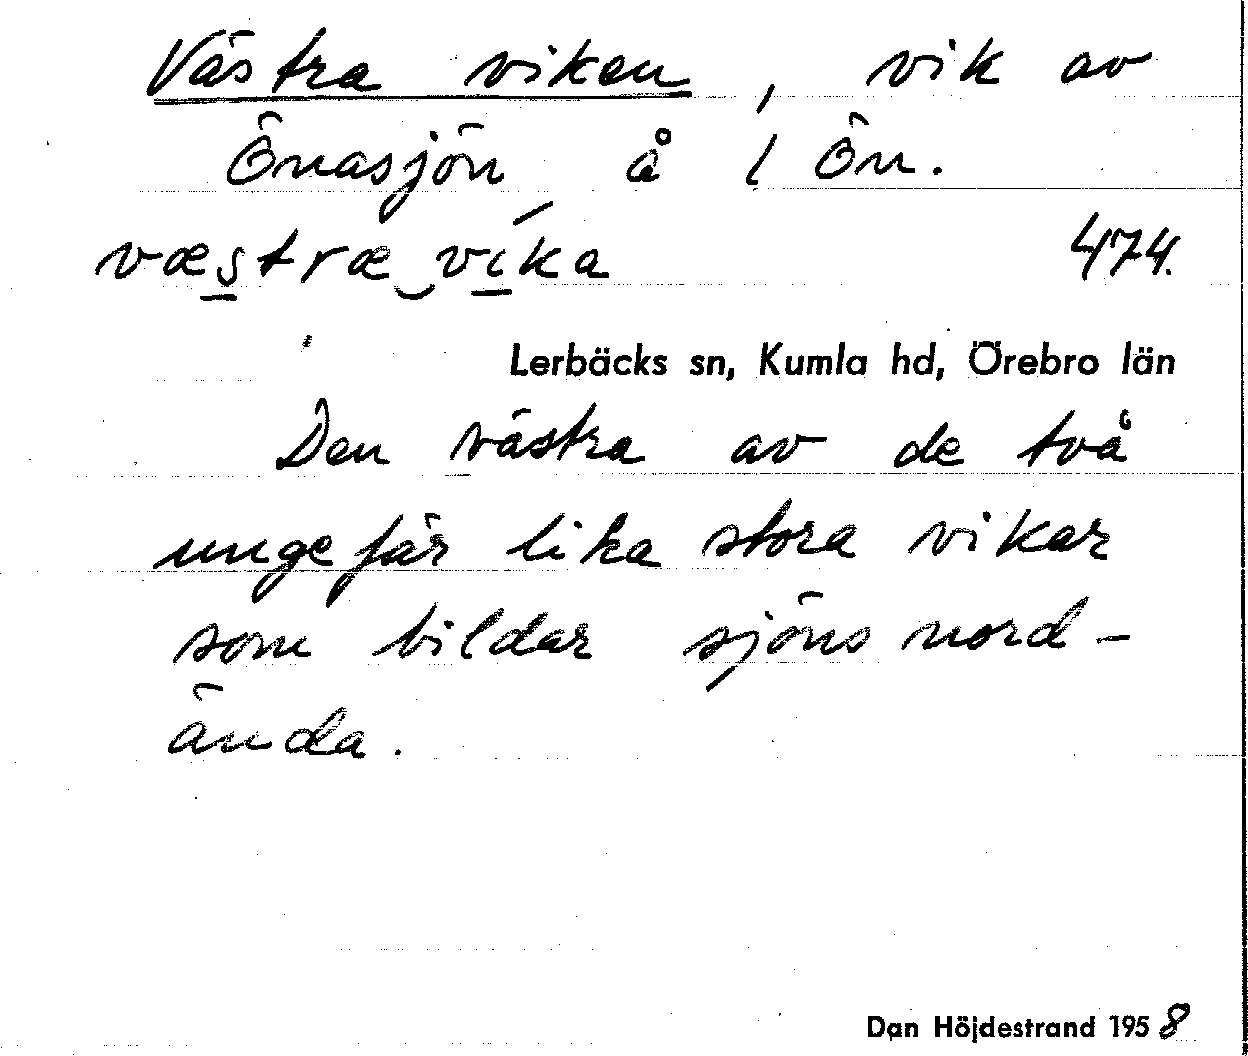 Västra viken, vik av
Önasjön å 1 Ön.
væstræ‿víka 474.
Lerbäcks sn, Kumla hd, Örebro län
Den västra av de två
ungefär lika stora vikar
som bildar sjöns nord-
ända.
Dan Höjdestrand 1958